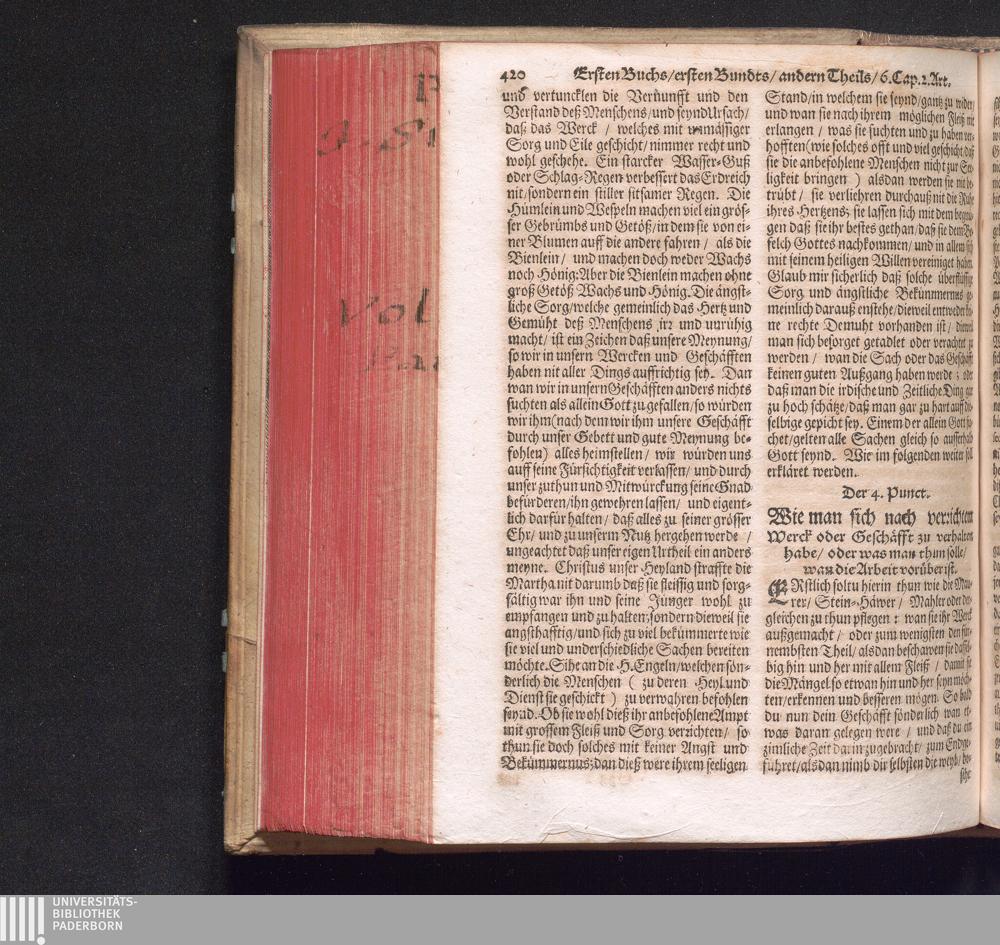 420 Ersten Buchs/ersten Bundts/andern Theils/6. Cap. 2. Art.
und vertuncklen die Vernunfft und den
Verstand deß Menschens/und seynd Ursach/
daß das Werck / welches mit unmässiger
Sorg und Eile geschicht/nimmer recht und
wohl geschehe. Ein starcker Wasser-Guß
oder Schlag-Regen verbessert das Erdreich
nit/sondern ein stiller sitsamer Regen. Die
Hümlein und Wespeln machen viel ein grös-
ser Gebrümbs und Getöß/in dem sie von ei-
ner Blumen auff die andere fahren / als die
Bienlein / und machen doch weder Wachs
noch Hönig: Aber die Bienlein machen ohne
groß Getöß Wachs und Hönig. Die ängst-
liche Sorg/welche gemeinlich das Hertz und
Gemüht deß Menschens irz und unrühig
macht/ ist ein Zeichen daß unsere Meynung/
so wir in unsern Wercken und Geschäfften
haben nit aller Dings auffrichtig sey. Dan
wan wir in unsern Geschäfften anders nichts
suchten als allein Gott zu gefallen/so würden
wir ihm (nach dem wir ihm unsere Geschäfft
durch unser Gebett und gute Meynung be-
fohlen) alles heimstellen/ wir würden uns
auff seine Fürsichtigkeit verlassen/ und durch
unser zuthun und Mitwürckung seine Gnad
befürderen/ihn gewehren lassen/ und eigent-
lich darfür halten/ daß alles zu seiner grösser
Ehr/ und zu unserm Nutz hergehen werde /
ungeachtet daß unser eigen Urtheil ein anders
meyne. Christus unser Heyland straffte die
Martha nit darumb daß sie fleissig und sorg-
fältig war ihn und seine Jünger wohl zu
empfangen und zu halten; sondern dieweil sie
angsthafftig/und sich zu viel bekümmerte wie
sie viel und underschiedliche Sachen bereiten
möchte. Sihe an die H. Engeln/welchen sön-
derlich die Menschen ( zu deren Heyl und
Dienst sie geschickt ) zu verwahren befohlen
seynd. Ob sie wohl dieß ihr anbefohlene Ampt
mit grossem Fleiß und Sorg verzichten/ so
thun sie doch solches mit keiner Angst und
Bekümmernus; dan dieß were ihrem seeligen
Stand/in welchem sie seynd/gantz zu wider/
und wan sie nach ihrem möglichen Fleiß nit
erlangen / was sie suchten und zu haben ver-
hofften (wie solches offt und viel geschicht daß
sie die anbefohlene Menschen nicht zur See-
ligkeit bringen ) alsdan werden sie nit be-
trübt/ sie verliehren durchauß nit die Ruhe
ihres Hertzens; sie lassen sich mit dem begnü-
gen daß sie ihr bestes gethan/daß sie dem Be-
felch Gottes nachkommen/ und in allem sich
mit seinem heiligen Willen vereiniget haben.
Glaub mir sicherlich daß solche überflüssige
Sorg und ängstliche Bekümmernus ge-
meinlich darauß enstehe/dieweil entweder kei-
ne rechte Demuht vorhanden ist/ dieweil
man sich besorget getadlet oder verachtet zu
werden / wan die Sach oder das Geschäfft
keinen guten Außgang haben werde; oder
daß man die irdische und Zeitliche Ding gar
zu hoch schätze/daß man gar zu hart auff die-
selbige gepicht sey. Einem der allein Gott su-
chet/gelten alle Sachen gleich so ausserhalb
Gott seynd. Wie im folgenden weiter soll
erkläret werden.
Der 4. Punct.
Wie man sich nach verzichtem
Werck oder Geschäfft zu verhalten
habe/ oder was man thun solle/
wan die Arbeit vorüber ist.
ERstlich soltu hierin thun wie die Mau-
rer/ Stein-Häwer / Mahler oder der-
gleichen zu thun pflegen: wan sie ihr Werck
außgemacht/ oder zum wenigsten den für-
nembsten Theil/ alsdan beschawen sie dassel-
big hin und her mit allem Fleiß / damit sie
die Mängel so etwan hin und her seyn möch-
ten/erkennen und besseren mögen. So bald
du nun dein Geschäfft sönderlich wan et-
was daran gelegen were / und daß du ein
zimliche Zeit darin zugebracht/ zum End ge-
führet/alsdan nimb dir selbsten die weyl/ be-
siht
Vol
UNIVERSITÄTS-
BIBLIOTHEK
PADERBORN